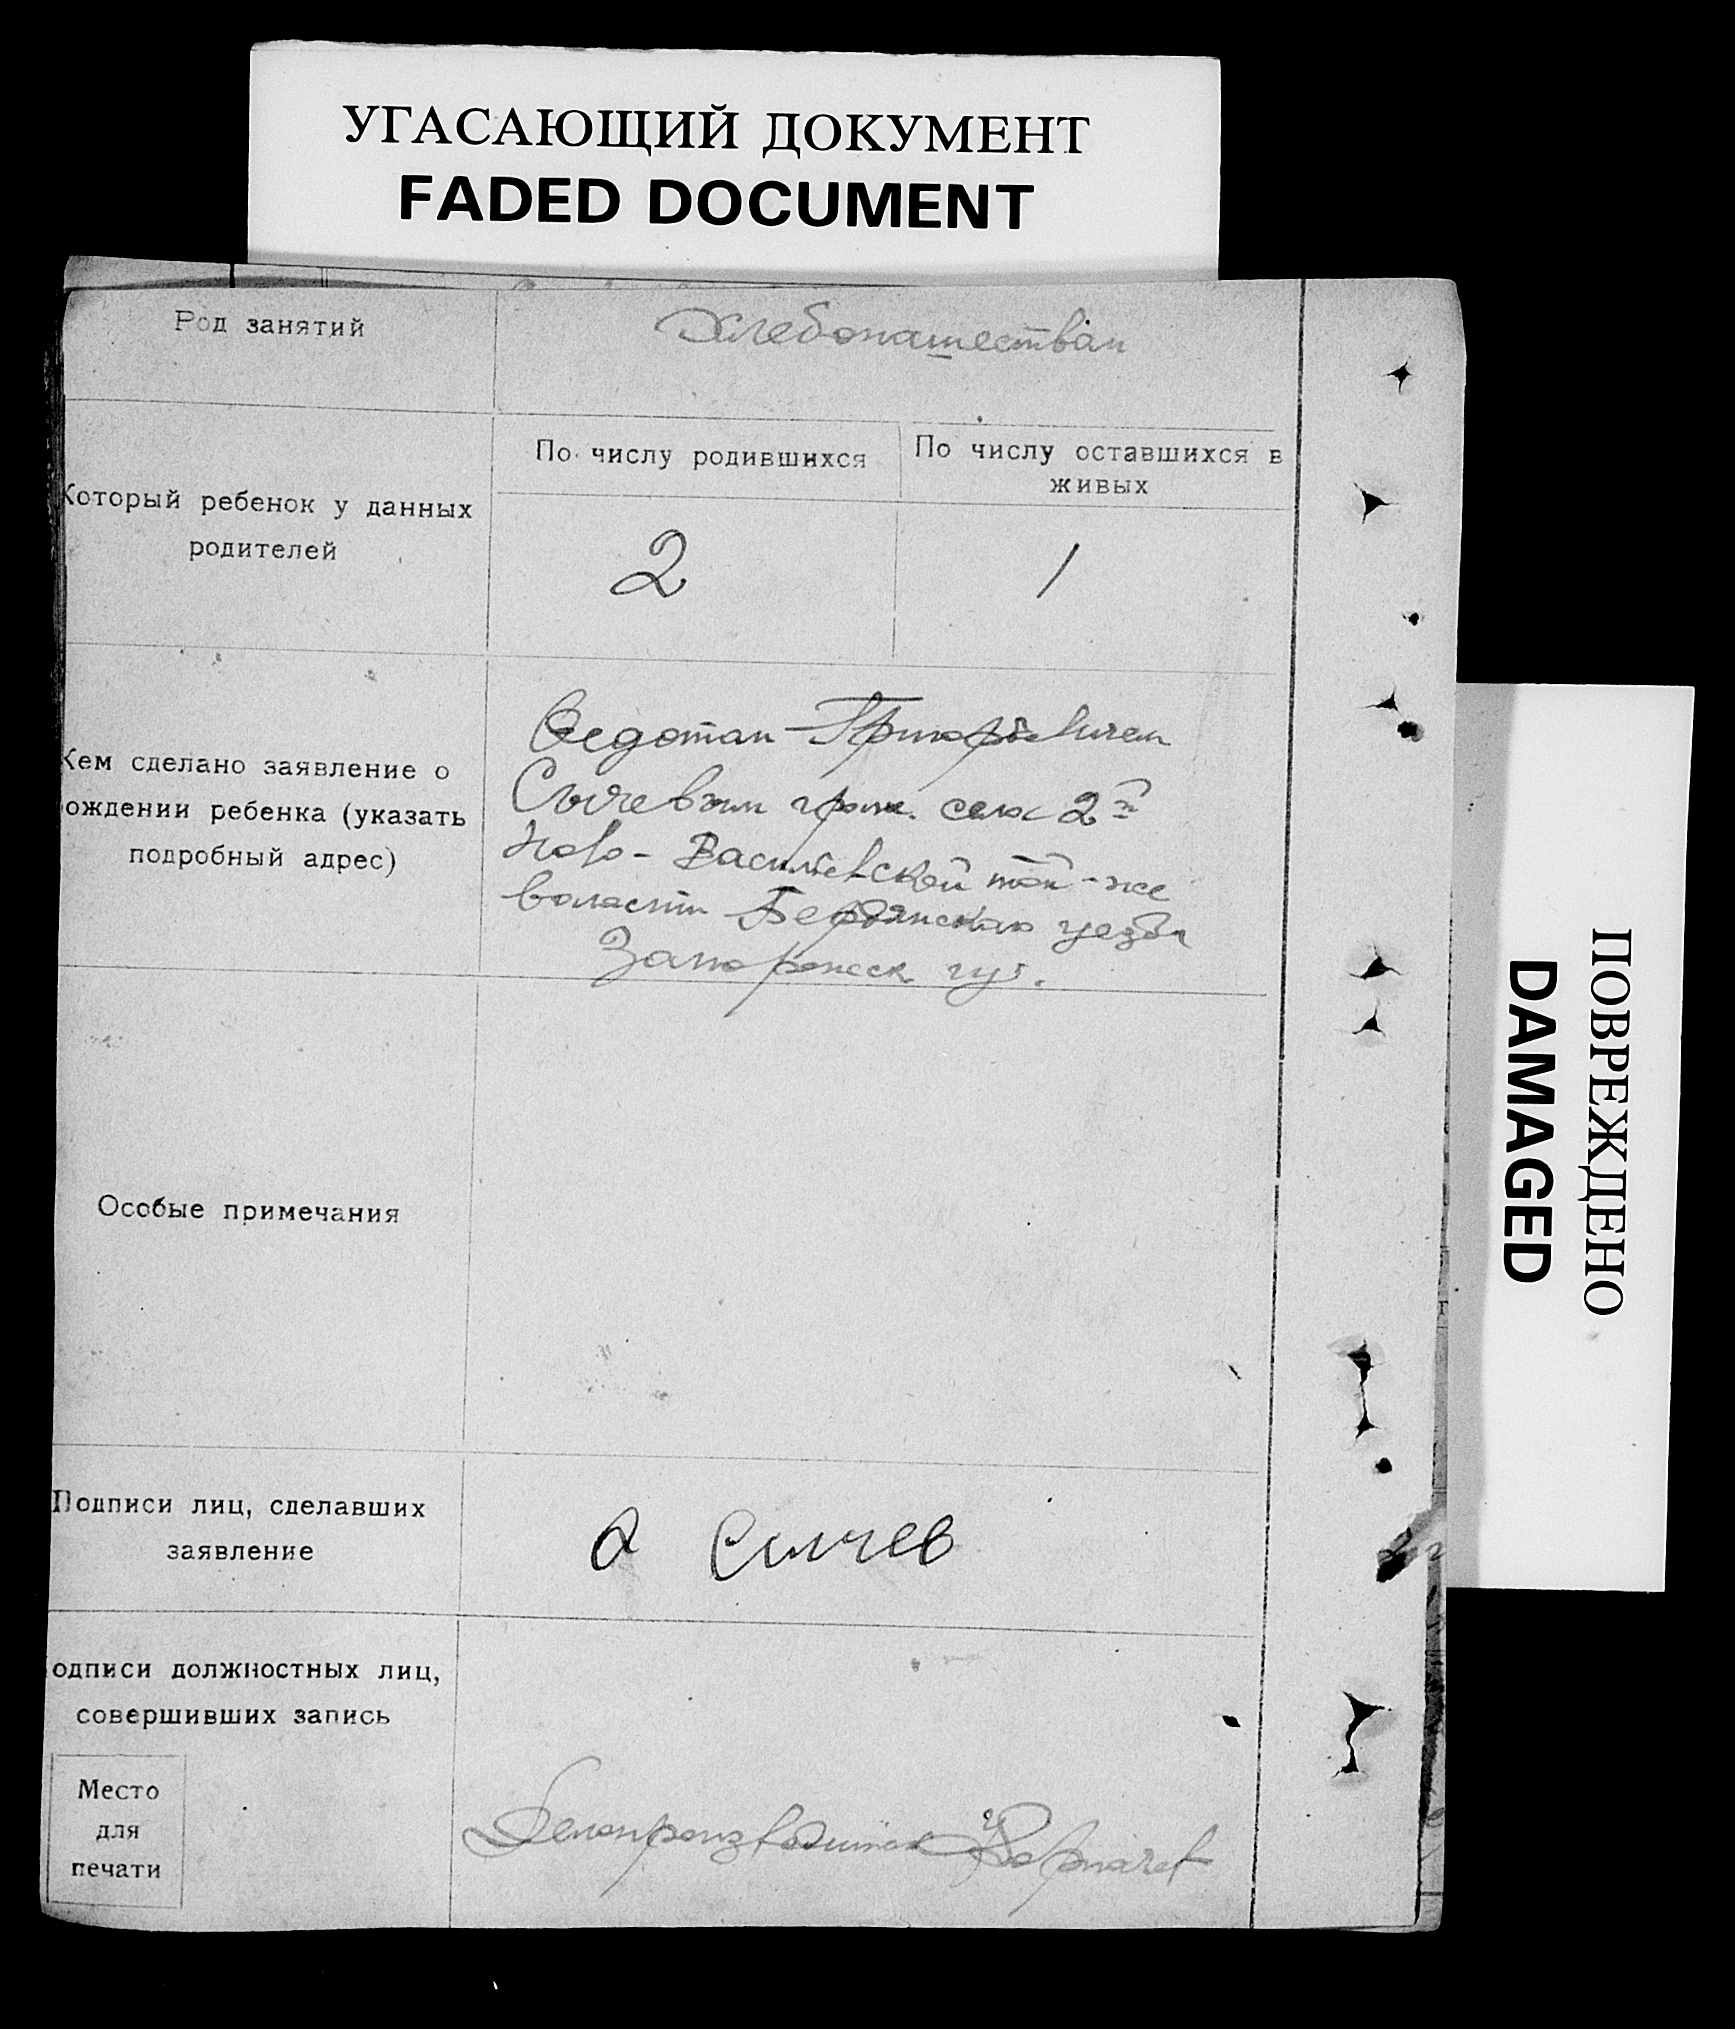 УГАСАЮЩИЙ ДОКУМЕНТ
FADED DOCUMENT
Род занятий
Хлебопашествам
По числу родившихся
По числу оставшихся в
живых
Который ребенок у данных
родителей
2
1
Кем сделано заявление о
ождении ребенка (указать
подробный адрес)
Федотам Григорьевичем
Сычевым граж. села 2й
Ново-Васильевской той-же
воласти Бердянскаго уезда
Запорожск губ.
Особые примечания
Подписи лиц, сделавших
заявление
Сычев
одписи должностных лиц,
совершивших запись
Место
для
печати
Делопроизводитель
ПОВРЕЖДЕНО
DAMAGED